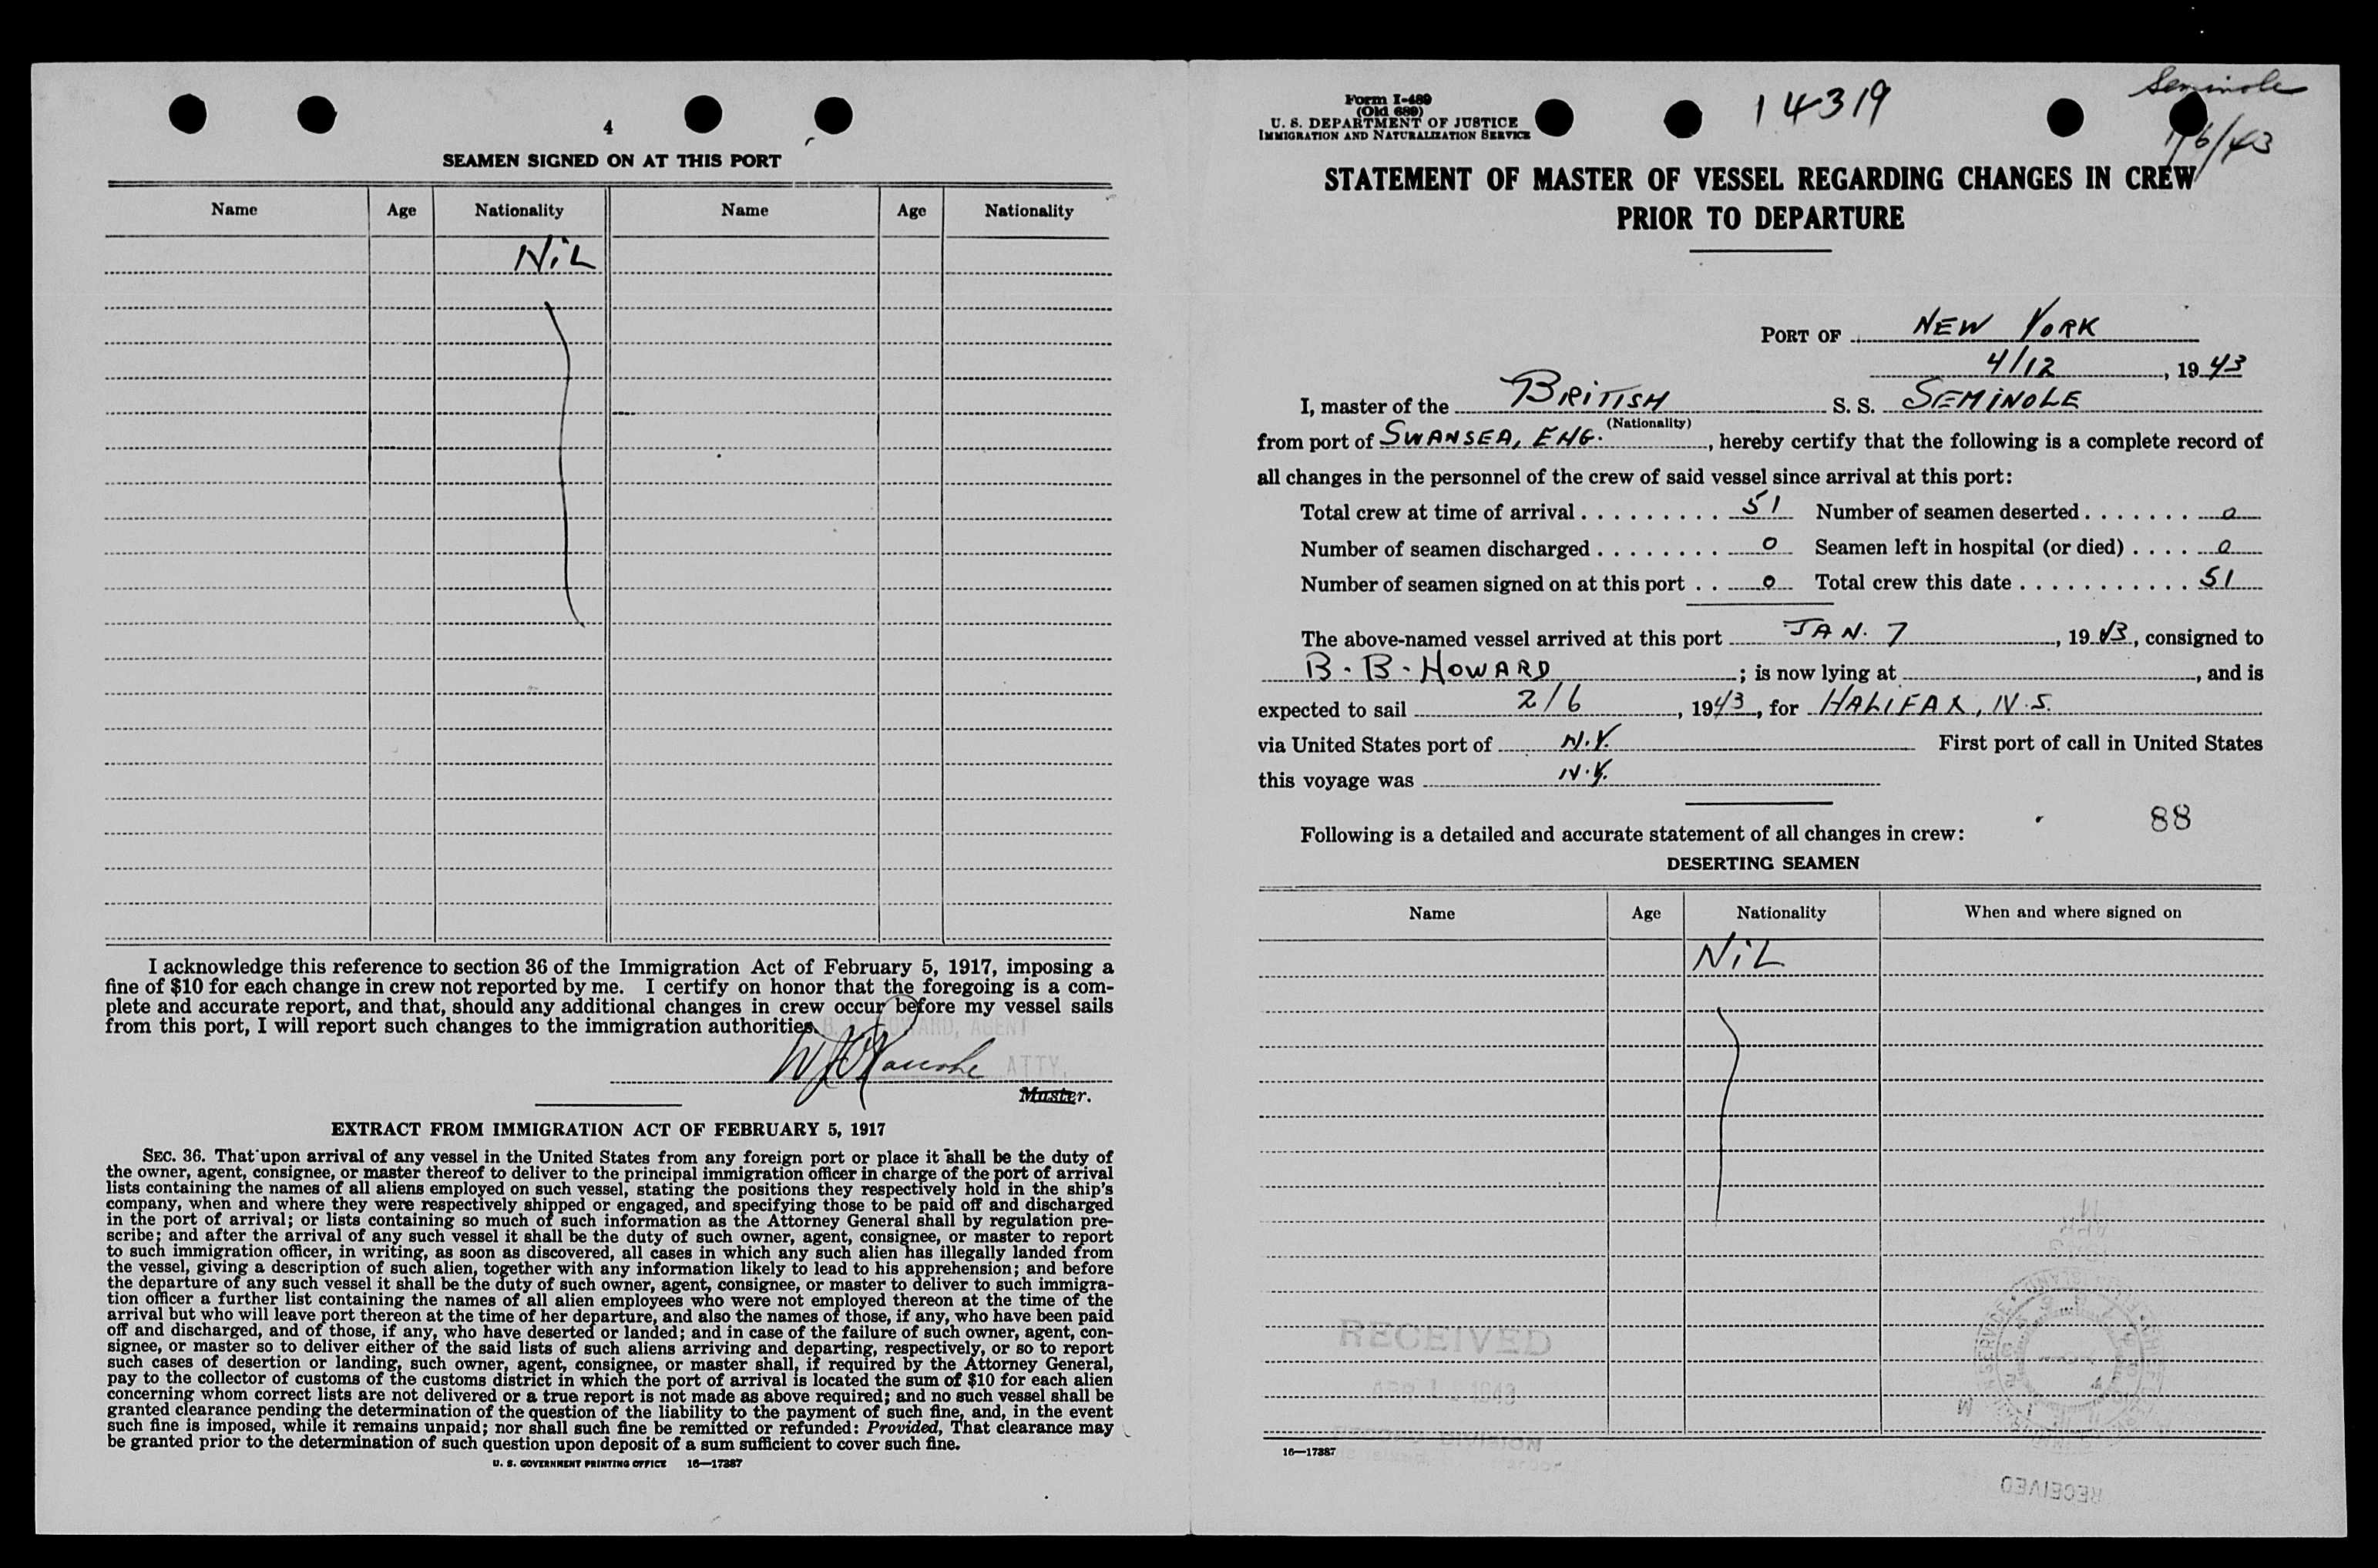 4
SEAMEN SIGNED ON AT THIS PORT
Name Age Nationality Name Age Nationality
NiL
I acknowledge this reference to section 36 of the Immigration Act of February 5, 1917, imposing a
fine of $10 for each change in crew not reported by me. I certify on honor that the foregoing is a com-
plete and accurate report, and that, should any additional changes in crew occur before my vessel sails
from this port, I will report such changes to the immigration authorities.
HOWARD, AGENT
ATTY.
Master.
EXTRACT FROM IMMIGRATION ACT OF FEBRUARY 5, 1917
SEC. 36. That upon arrival of any vessel in the United States from any foreign port or place it shall be the duty of
the owner, agent, consignee, or master thereof to deliver to the principal immigration officer in charge of the port of arrival
lists containing the names of all aliens employed on such vessel, stating the positions they respectively hold in the ship's
company, when and where they were respectively shipped or engaged, and specifying those to be paid off and discharged
in the port of arrival; or lists containing so much of such information as the Attorney General shall by regulation pre-
scribe; and after the arrival of any such vessel it shall be the duty of such owner, agent, consignee, or master to report
to such immigration officer, in writing, as soon as discovered, all cases in which any such alien has illegally landed from
the vessel, giving a description of such alien, together with any information likely to lead to his apprehension; and before
the departure of any such vessel it shall be the duty of such owner, agent, consignee, or master to deliver to such immigra-
tion officer a further list containing the names of all alien employees who were not employed thereon at the time of the
arrival but who will leave port thereon at the time of her departure, and also the names of those, if any, who have been paid
off and discharged, and of those, if any, who have deserted or landed; and in case of the failure of such owner, agent, con-
signee, or master so to deliver either of the said lists of such aliens arriving and departing, respectively, or so to report
such cases of desertion or landing, such owner, agent, consignee, or master shall, if required by the Attorney General,
pay to the collector of customs of the customs district in which the port of arrival is located the sum of $10 for each alien
concerning whom correct lists are not delivered or a true report is not made as above required; and no such vessel shall be
granted clearance pending the determination of the question of the liability to the payment of such fine, and, in the event
such fine is imposed, while it remains unpaid; nor shall such fine be remitted or refunded: Provided, That clearance may
be granted prior to the determination of such question upon deposit of a sum sufficient to cover such fine.
U. S. GOVERNMENT PRINTING OFFICE 16—17387
Form I-489
(Old 689)
U. S. DEPARTMENT OF JUSTICE
IMMIGRATION AND NATURALIZATION SERVICE
14319
Seminole
STATEMENT OF MASTER OF VESSEL REGARDING CHANGES IN CREW
PRIOR TO DEPARTURE
PORT OF NEW YORK
4/12, 1943
I, master of the BRITISH S. S. SEMINOLE
(Nationality)
from port of SWANSEA, ENG., hereby certify that the following is a complete record of
all changes in the personnel of the crew of said vessel since arrival at this port:
Total crew at time of arrival 51 Number of seamen deserted 0
Number of seamen discharged 0 Seamen left in hospital (or died) 0
Number of seamen signed on at this port 0 Total crew this date 51
The above-named vessel arrived at this port JAN. 7, 1943, consigned to
B. B. HOWARD; is now lying at , and is
expected to sail 2/6, 1943, for HALIFAX, N.S.
via United States port of N.Y. First port of call in United States
this voyage was N.Y.
88
Following is a detailed and accurate statement of all changes in crew:
DESERTING SEAMEN
Name Age Nationality When and where signed on
NiL
RECEIVED
16—17387
RECEIVED